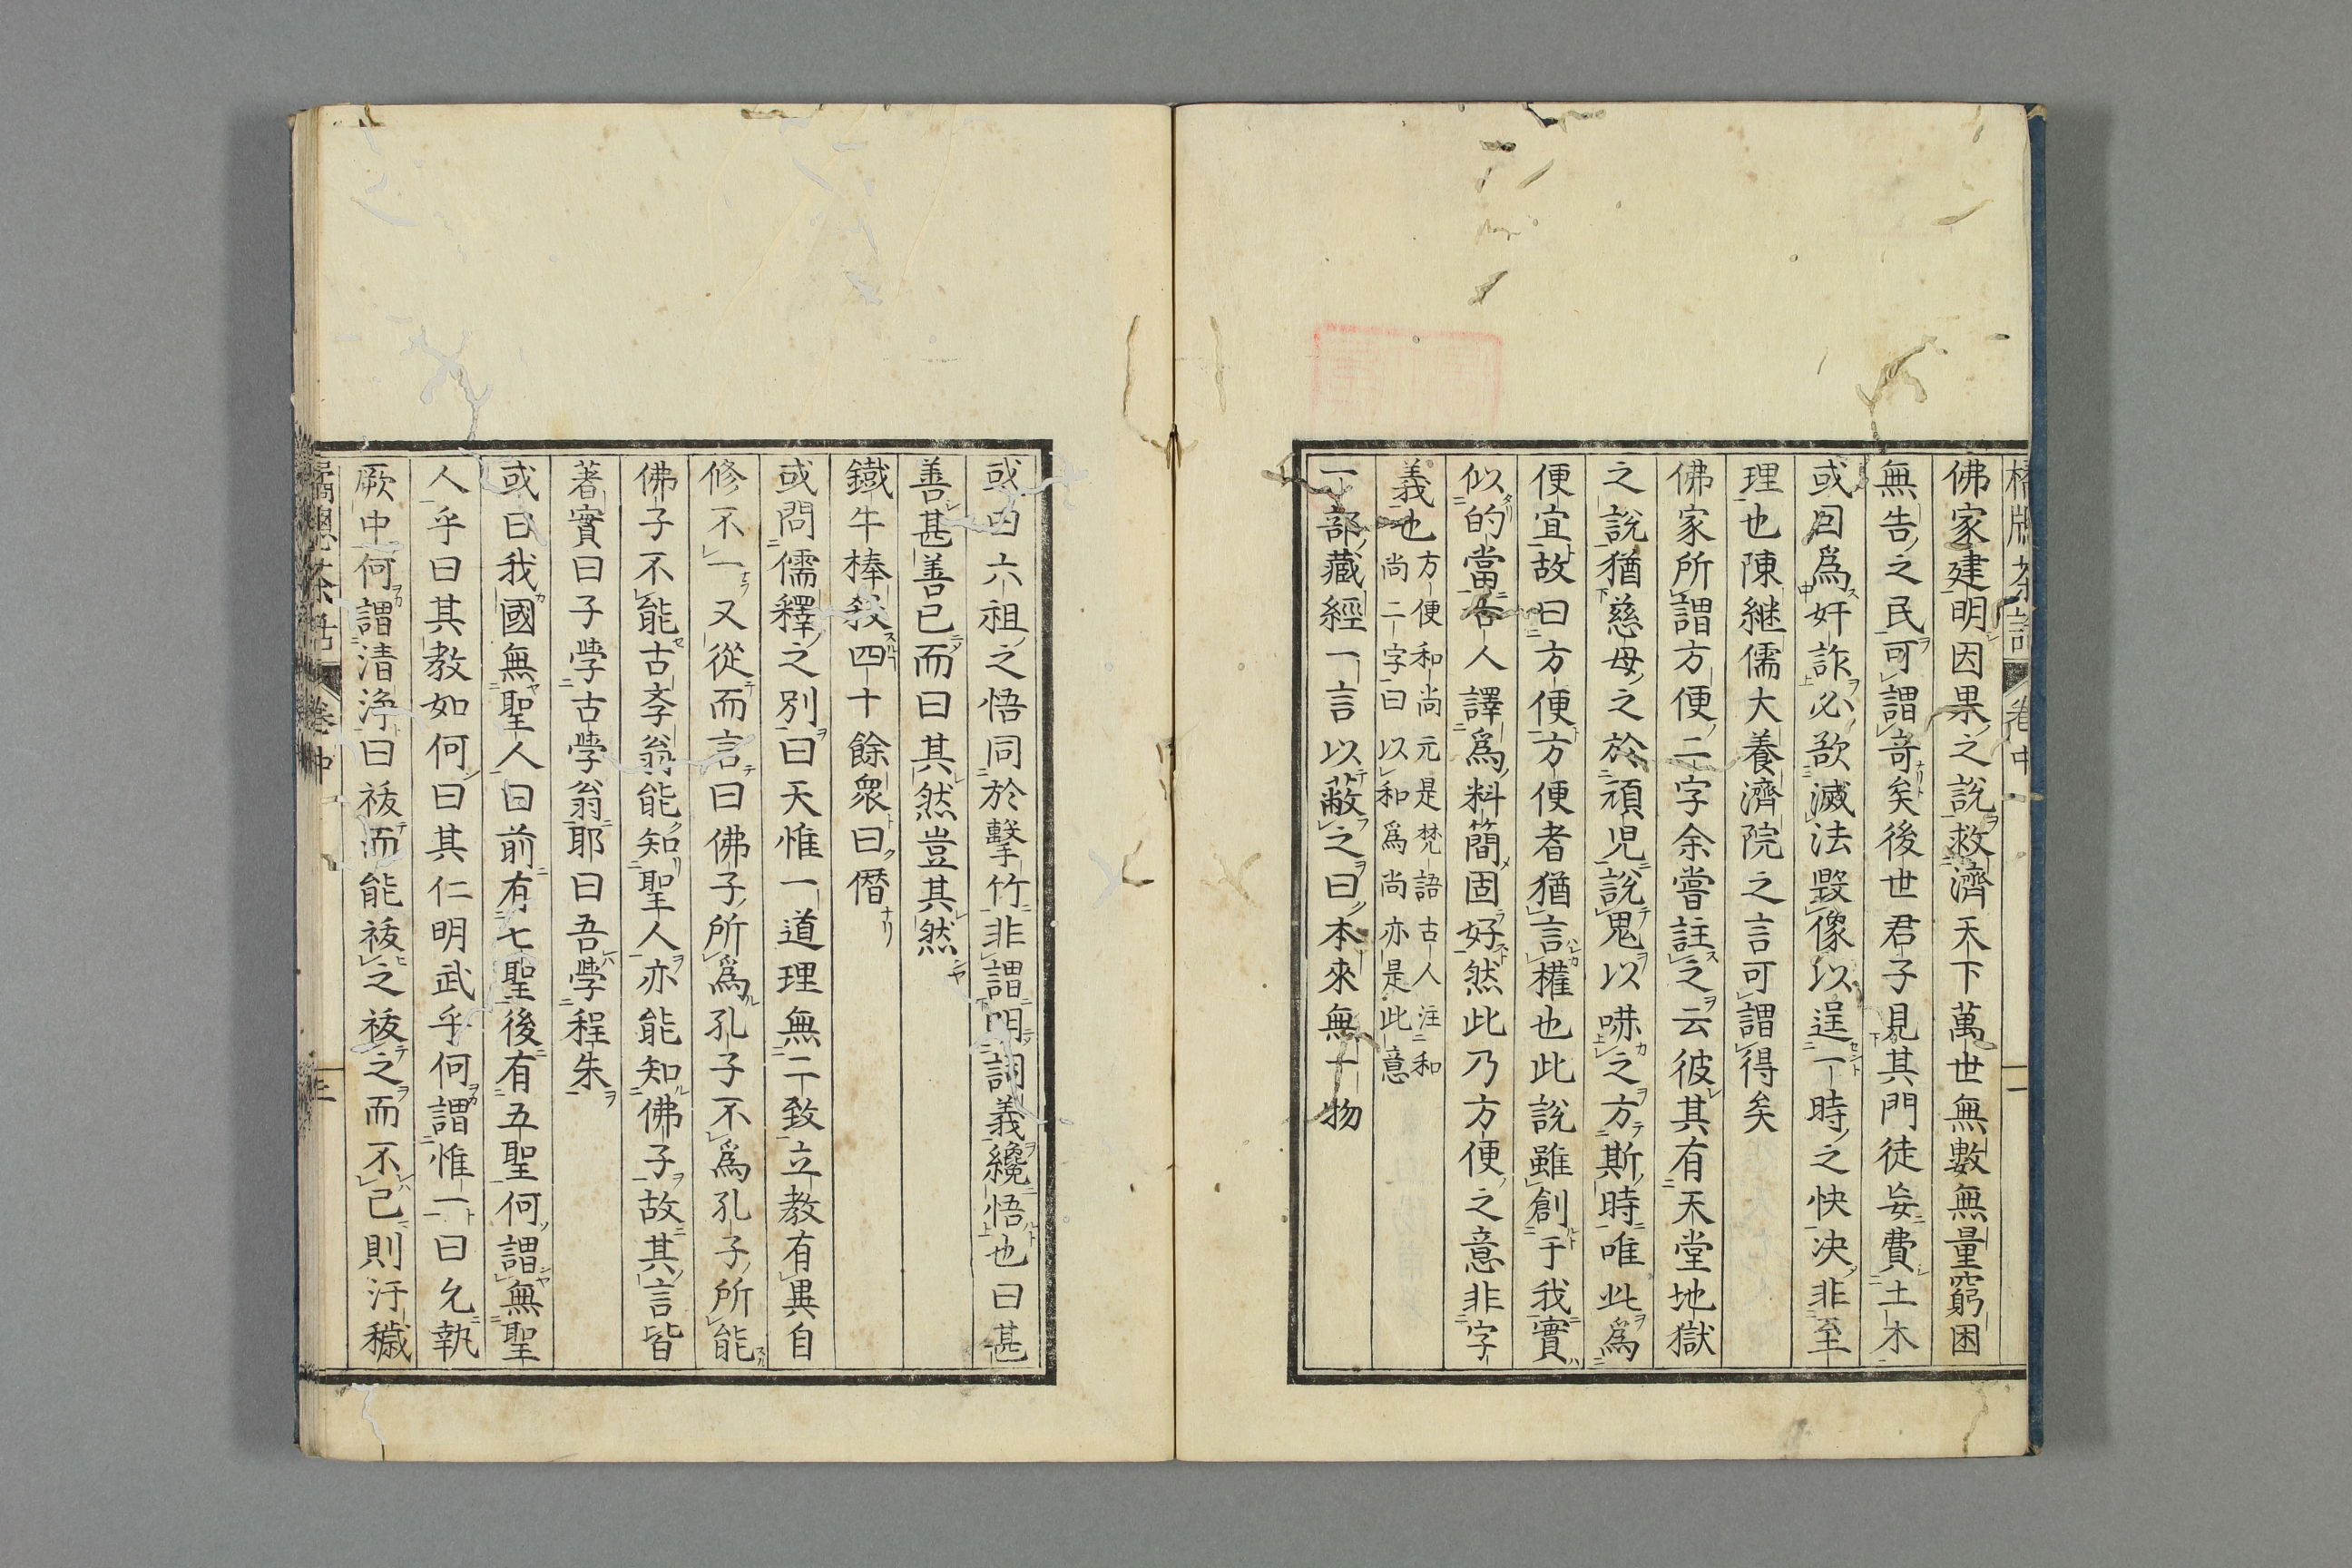 佛家建明因果之說救濟天下萬世無數無量窮困
無告之民可謂奇矣後世君子見其門徒妄費土木
或因爲奸詐必欲滅法毀像以逞一時之快決非至
理也陳継儒大養濟院之言可謂得矣
佛家所謂方便二字余嘗註之云彼其有天堂地獄
之說猶慈母之於頑児說鬼以哧之方斯時唯此爲
便宜故曰方便方便者猶言權也此說雖創于我實
似的當昔人譯爲料簡固好然此乃方便之意非字
義也方便和尚元是梵語古人注和
尚二字曰以和爲尚亦是此意
一部藏經一言以蔽之曰本來無一物
卷中
二
或曰六祖之悟同於擊竹非謂明詞義纔悟也曰甚
善甚善已而曰其然豈其然
鐵牛棒殺四十餘衆曰僭
或問儒釋之別曰天惟一道理無二致立教有異自
修不一又從而言曰佛子所爲孔子不爲孔子所能
佛子不能古斈翁能知聖人亦能知佛子故其言皆
著實曰子學古學翁耶曰吾學程朱
或曰我國無聖人曰前有七聖後有五聖何謂無聖
人乎曰其教如何曰其仁明武乎何謂惟一曰允執
厥中何謂清浄曰祓而能祓之祓之而不已則汙穢
茶話
卷中
三